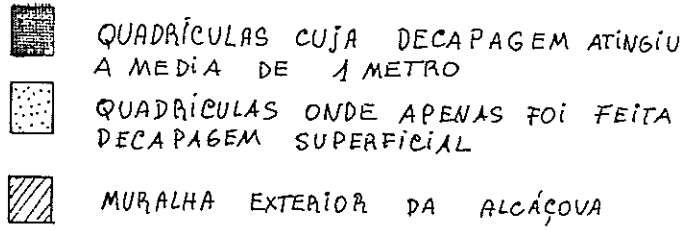 QUADRÍCULAS CUJA DECAPAGEM ATINGIU
A MEDIA DE 1 METRO
QUADRICULAS ONDE APENAS FOI FEITA
DECAPAGEM SUPERFICIAL
MURALHA EXTERIOR DA ALCÁÇOVA